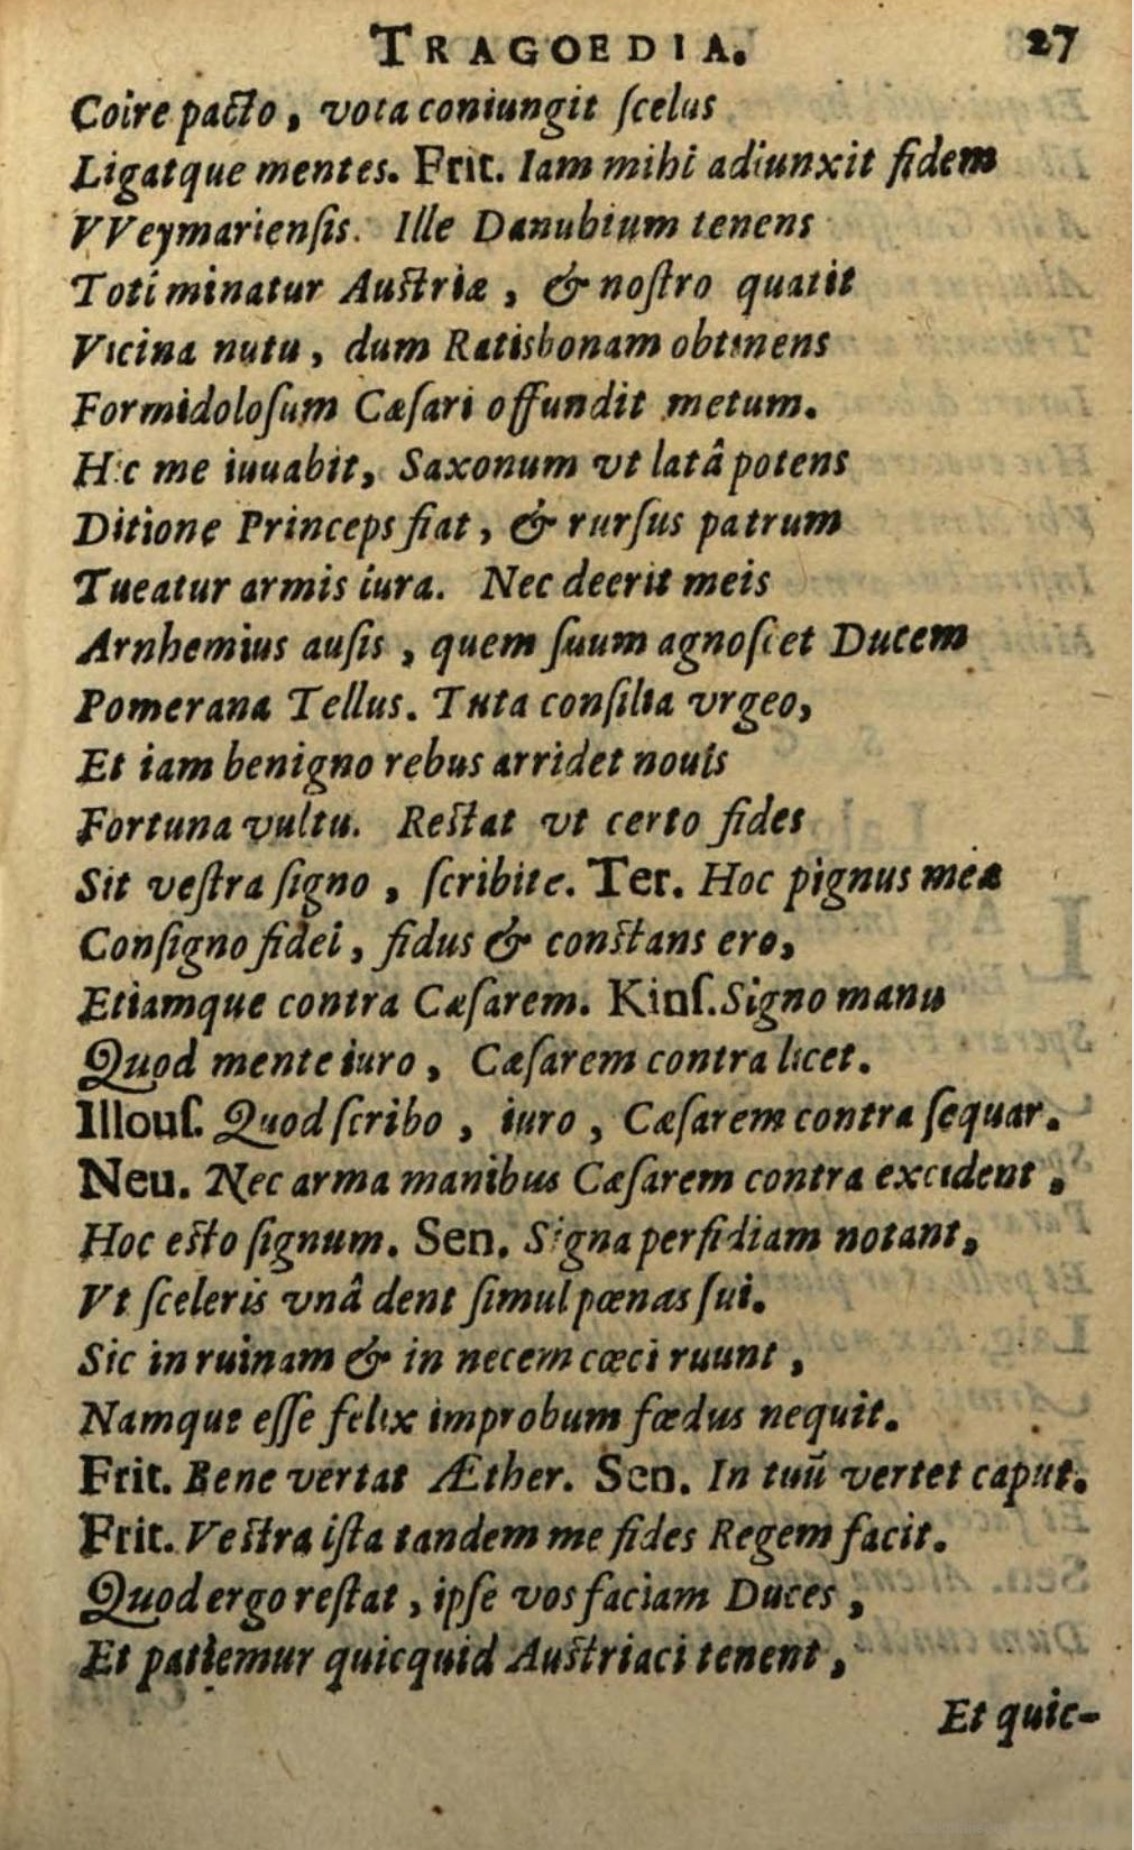 TRAGOEDIA. 27
Coire pacto, vota coniungit ſcelus
Ligatque mentes. Frit. Iam mihi adiunxit fidem
VVeymarienſis. Ille Danubium tenens
Toti minatur Auſtriæ, & noſtro quatit
Vicina nutu, dum Ratisbonam obtinens
Formidoloſum Cæſari offundit metum.
Hic me iuuabit, Saxonum vt latâ potens
Ditione Princeps fiat, & rurſus patrum
Tueatur armis iura. Nec deerit meis
Arnhemius auſis, quem ſuum agnoſcet Ducem
Pomerana Tellus. Tuta conſilia vrgeo,
Et iam benigno rebus arridet nouis
Fortuna vultu. Reſtat vt certo fides
Sit veſtra ſigno, ſcribite. Ter. Hoc pignus meæ
Conſigno fidei, fidus & conſtans ero,
Etiamque contra Cæſarem. Kinſ. Signo manu
Quod mente iuro, Cæſarem contra licet.
Illouſ. Quod ſcribo, iuro, Cæſarem contra ſequar.
Neu. Nec arma manibus Cæſarem contra excident,
Hoc eſto ſignum. Sen. Signa perfidiam notant,
Vt ſceleris vnâ dent ſimul pœnas ſui.
Sic in ruinam & in necem cœci ruunt,
Namque eſſe felix improbum fœdus nequit.
Frit. Bene vertat Æther. Sen. In tuũ vertet caput.
Frit. Veſtra iſta tandem me fides Regem facit.
Quod ergo reſtat, ipſe vos faciam Duces,
Et patiemur quicquid Auſtriaci tenent,
Et quic-